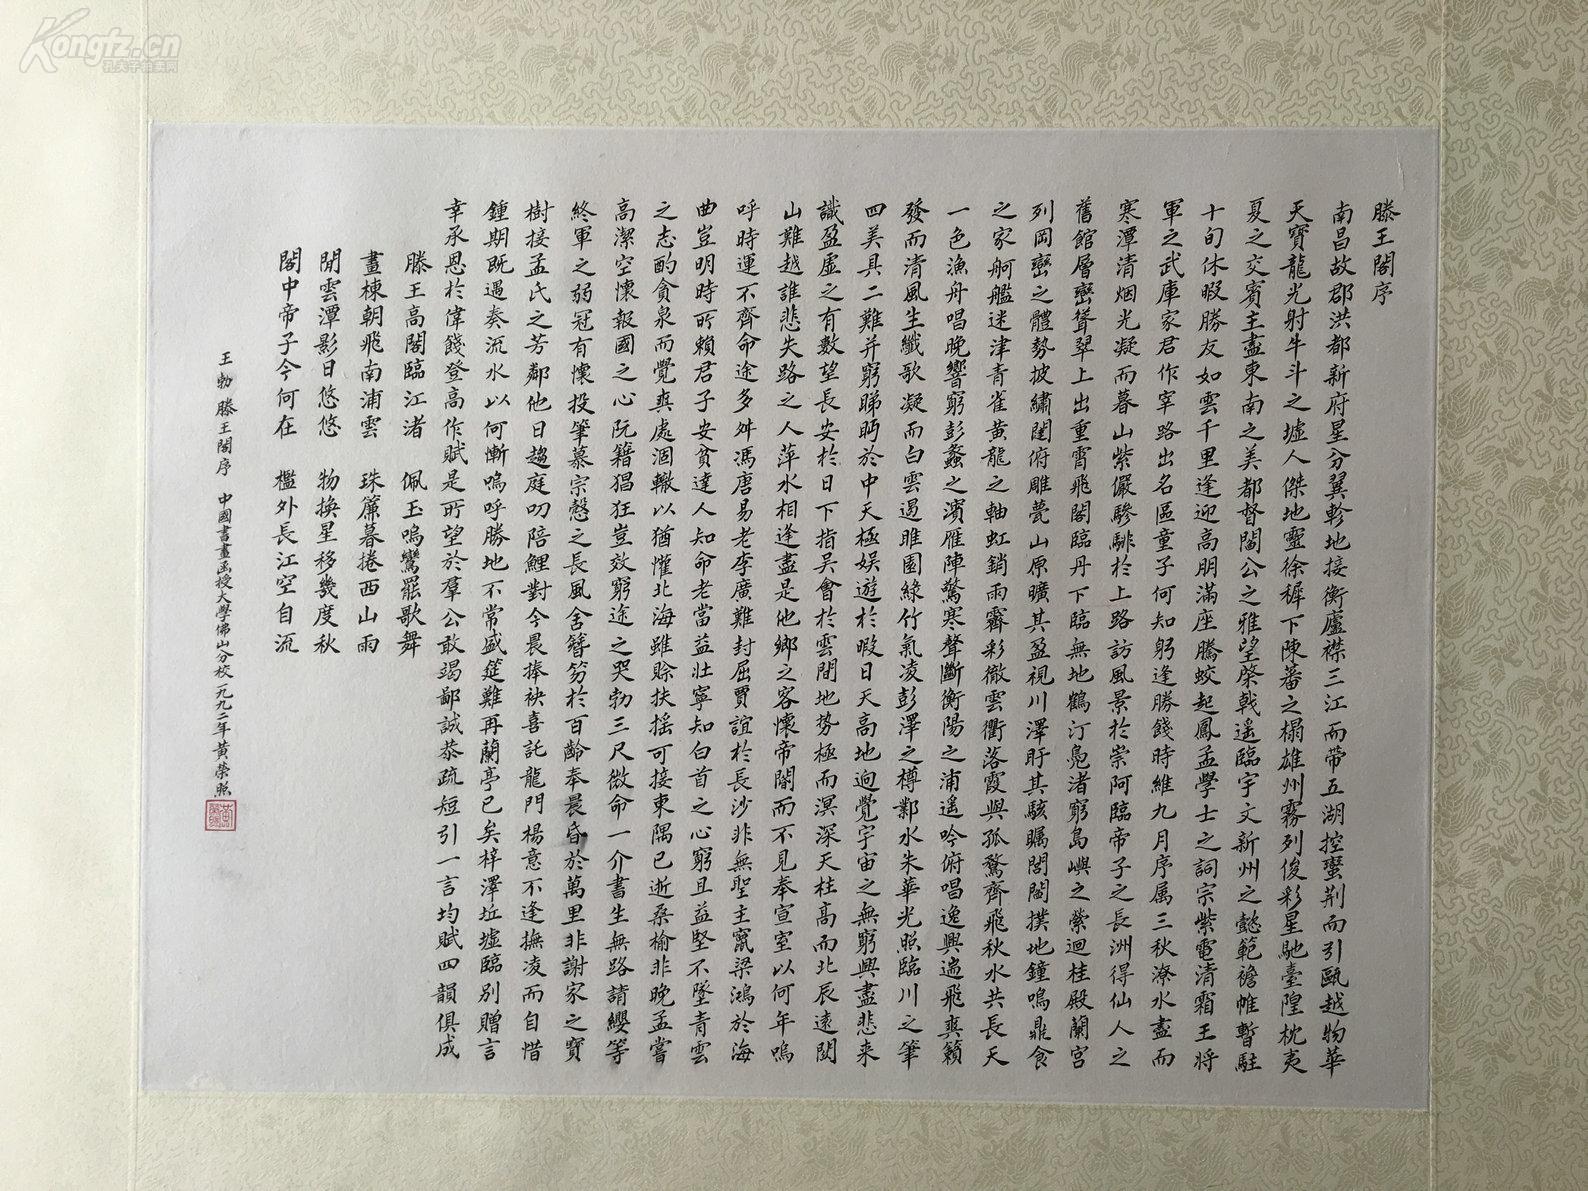 滕王閣序
南昌故郡洪都新府星分翼軫地接衡廬襟三江而帶五湖控蠻荆而引甌越物華
天寶龍光射牛斗之墟人傑地靈徐穉下陳蕃之榻雄州霧列俊彩星馳臺隍枕夷
夏之交賓主盡東南之美都督閻公之雅望棨戟遥臨宇文新州之懿範襜帷暫駐
十旬休暇勝友如雲千里逢迎高朋滿座騰蛟起鳳孟學士之詞宗紫電清霜王將
軍之武庫家君作宰路出名區童子何知躬逢勝餞時維九月序属三秋潦水盡而
寒潭清烟光凝而暮山紫儼驂騑於上路訪風景於崇阿臨帝子之長洲得仙人之
舊館層巒聳翠上出重霄飛閣臨丹下臨無地鶴汀鳧渚窮島嶼之縈迴桂殿蘭宫
列岡巒之體勢披繡闥俯雕甍山原曠其盈視川澤盱其駭矚閭閻撲地鐘鳴鼎食
之家舸艦迷津青雀黄龍之軸虹銷雨霽彩徹雲衢落霞與孤騖齊飛秋水共長天
一色漁舟唱晚響窮彭蠡之濱雁陣驚寒聲斷衡陽之浦遥吟俯唱逸興遄飛爽籟
發而清風生纖歌凝而白雲遏睢園緑竹氣凌彭澤之樽鄴水朱華光照臨川之筆
四美具二難并窮睇眄於中天極娱遊於暇日天高地迥覺宇宙之無窮興盡悲来
識盈虚之有數望長安於日下指吴會於雲間地势極而溟深天柱高而北辰遠関
山難越誰悲失路之人萍水相逢盡是他鄉之客懷帝閽而不見奉宣室以何年嗚
呼時運不齊命途多舛馮唐易老李廣難封屈賈誼於長沙非無聖主竄梁鴻於海
曲豈明時所賴君子安貧達人知命老當益壯寧知白首之心窮且益堅不墜青雲
之志酌貪泉而覺爽處涸轍以猶懽北海雖賒扶摇可接東隅已逝桑榆非晚孟嘗
高潔空懷報國之心阮籍猖狂豈效窮途之哭勃三尺微命一介書生無路請纓等
終軍之弱冠有懷投筆慕宗慤之長風舍簪笏於百齡奉晨昏於萬里非謝家之寶
樹接孟氏之芳鄰他日趨庭叨陪鯉對今晨捧袂喜託龍門楊意不逢撫凌而自惜
鍾期既遇奏流水以何慚嗚呼勝地不常盛筵難再蘭亭已矣梓澤坵墟臨别贈言
幸承恩於偉餞登高作賦是所望於羣公敢竭鄙誠恭疏短引一言均賦四韻俱成
滕王高閣臨江渚 佩玉鳴鸞罷歌舞
畫棟朝飛南浦雲 珠簾暮捲西山雨
閒雲潭影日悠悠 物换星移幾度秋
閣中帝子今何在 檻外長江空自流
王勃滕王閣序 中國書畫函授大學佛山分校一九九二年黄榮照
Kongfz.cn
孔夫子拍卖网